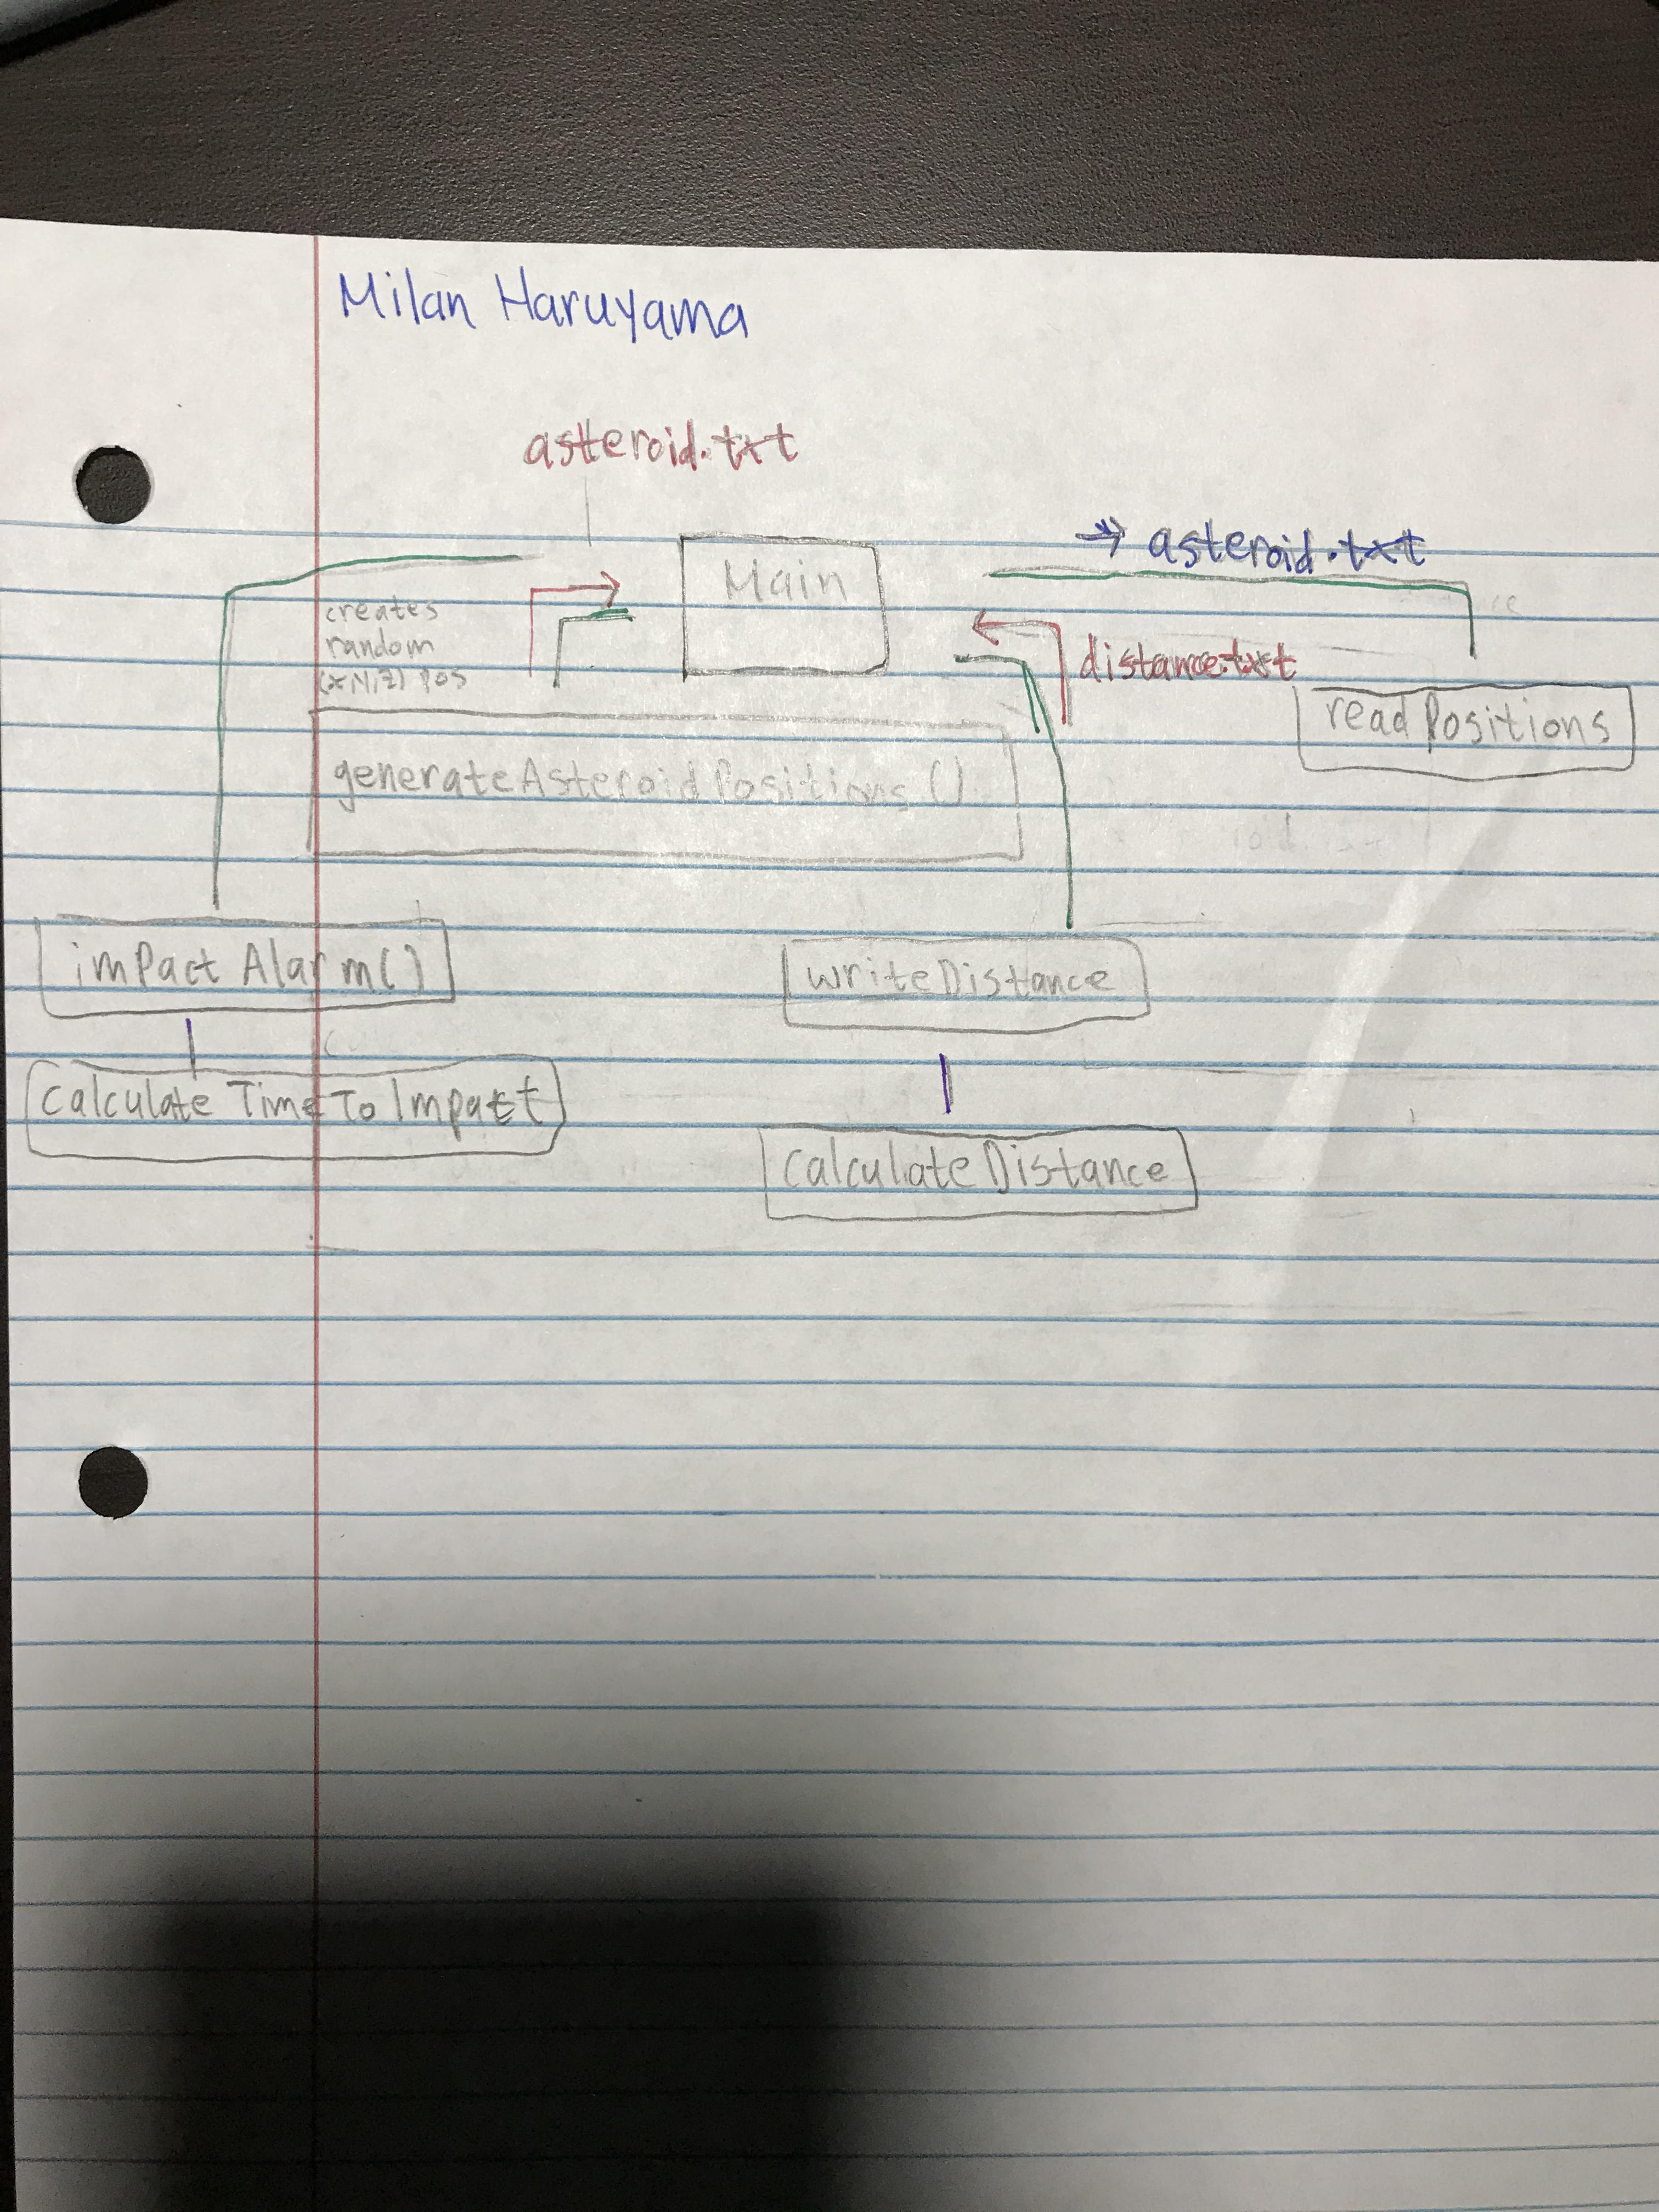 Milan Haruyama
asteroid.txt
Main
→ asteroid.txt
creates
random
(x,y,z) pos
distance.txt
readPositions
generateAsteroidPositions()
impactAlarm()
writeDistance
CalculateTimeToImpact
CalculateDistance